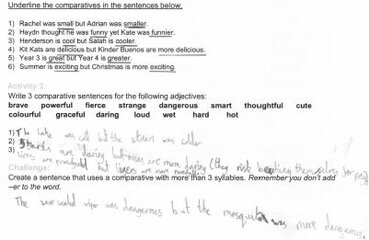 Underline the comparatives in the sentences below.
1) Rachel was small but Adrian was smaller.
2) Haydn thought he was funny yet Kate was funnier.
3) Henderson is cool but Salah is cooler.
4) Kit Kats are delicious but Kinder Buenos are more delicious.
5) Year 3 is great but Year 4 is greater.
6) Summer is exciting but Christmas is more exciting.
Activity 3:
Write 3 comparative sentences for the following adjectives:
brave powerful fierce strange dangerous smart thoughtful cute
colourful graceful daring loud wet hard hot
1) The lake was but the was
2) are daring but are more daring (they risk themselves
3) are but are more
Challenge:
Create a sentence that uses a comparative with more than 3 syllables. Remember you don't add
–er to the word.
The was dangerous but the mosquito was more dangerous.